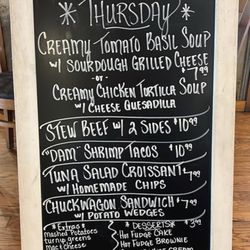 * THURSDAY *
CREAMY TOMATO BASIL SOUP
W/ SOURDOUGH GRILLED CHEESE
-or- $7.99
CREAMY CHICKEN TORTILLA SOUP
W/ CHEESE QUESADILLA
STEW BEEF W/ 2 SIDES $10.99
"DAM" SHRIMP TACOS $10.99
TUNA SALAD CROISSANT $7.99
W/ HOMEMADE CHIPS
CHUCKWAGON SANDWICH $7.99
W/ POTATO WEDGES
* Extras *
Mashed Potatoes
turnip greens
Mac & Cheese
* DESSERTS * $3.99
HOT FUDGE CAKE
HOT FUDGE BROWNIE